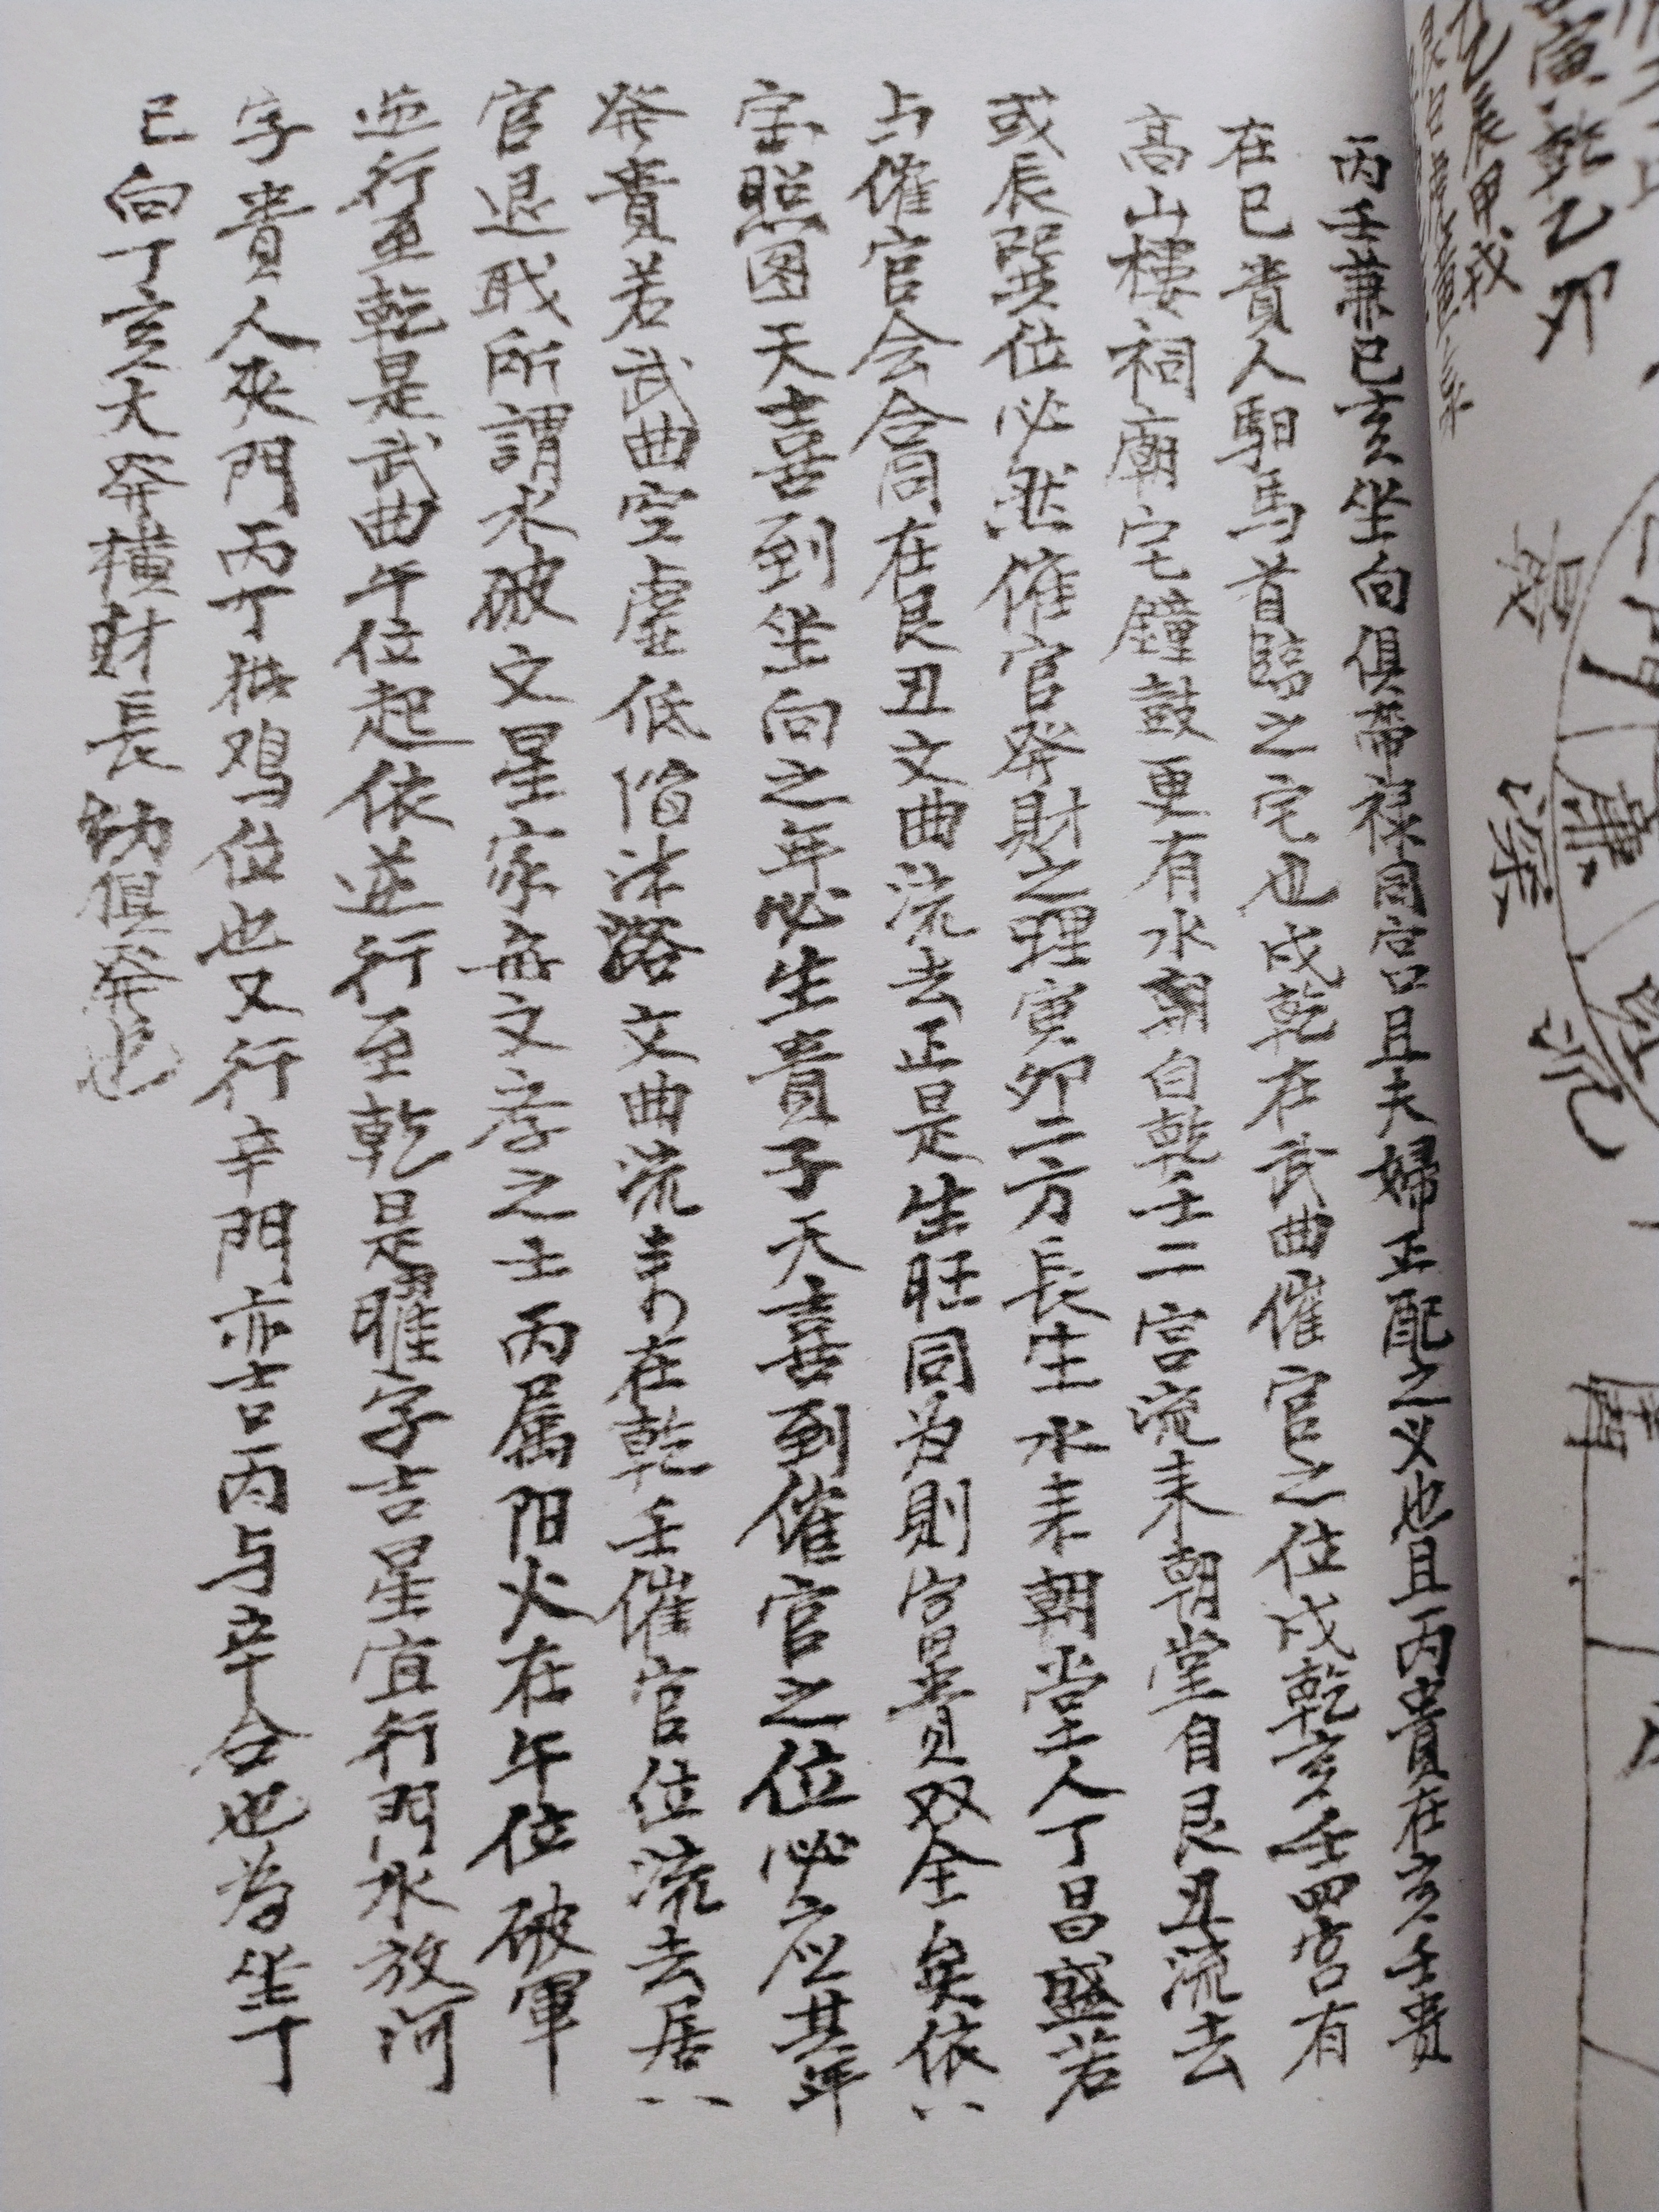 丙壬兼巳亥坐向俱帶祿固宮口且夫婦正配之义也且丙貴在亥壬貴
在巳貴人馹馬首臨之宅也戌乾在武曲催官之位戌乾亥壬四宮有
高山樓祠廟宅鐘鼓更有水朝自乾壬二宮流来朝堂自艮丑流去
或辰巽位必然催官発財之理寅卯二方長生水耒朝堂人丁昌盛若
与催官会合同在艮丑文曲流去正是生旺同为則富貴双全矣依八
宅照圖天喜到坐向之年必生貴子天喜到催官之位必应其年
発貴若武曲空虛低陷沐浴文曲流来的在乾壬催官位流去居八
官退戝所謂水破文星家無文孝之士丙属阳火在午位破軍
逆行至乾是武曲午位起依逆行至乾是曜字吉星宜行門水放河
字貴人夾門丙丁猪鸡位也又行辛門亦吉丙与辛合也若坐丁
巳向丁亥大発橫財長幼俱発也
乙辰甲戌
乾乙卯